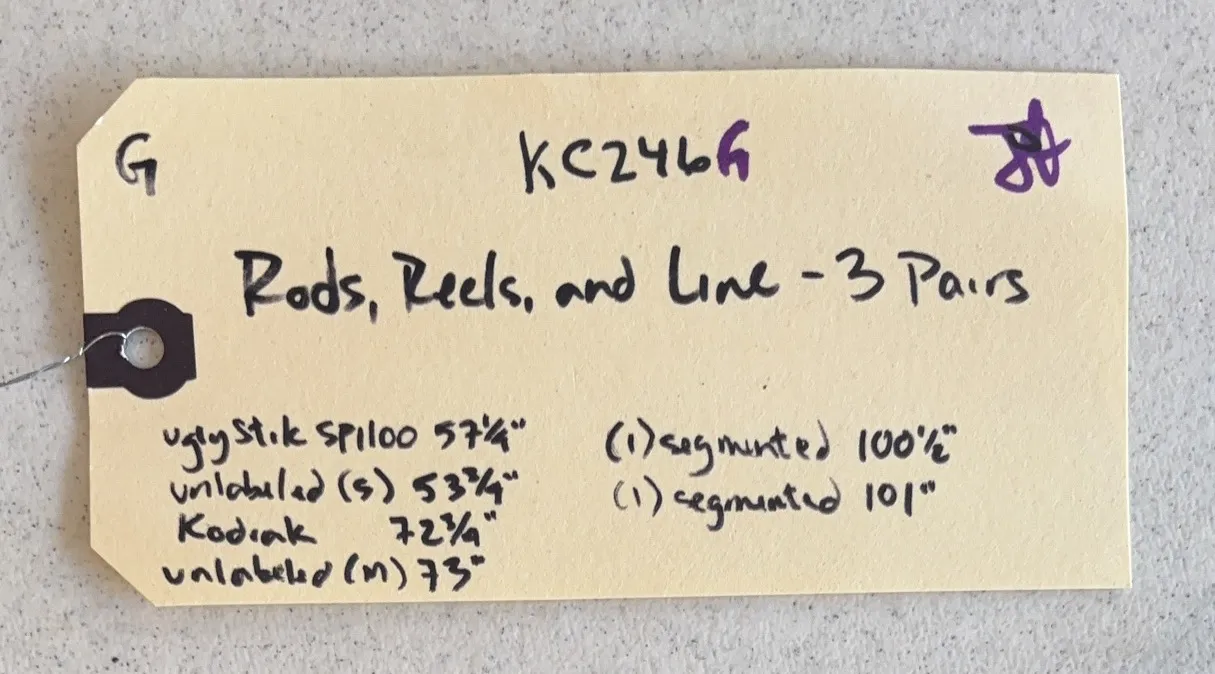 G
KC246G
Rods, Reels, and Line - 3 Pairs
Ugly Stik SP1100 57¼"
unlabeled (S) 53¾"
Kodiak 72¾"
unlabeled (M) 73"
(1) segmented 100½"
(1) segmented 101"